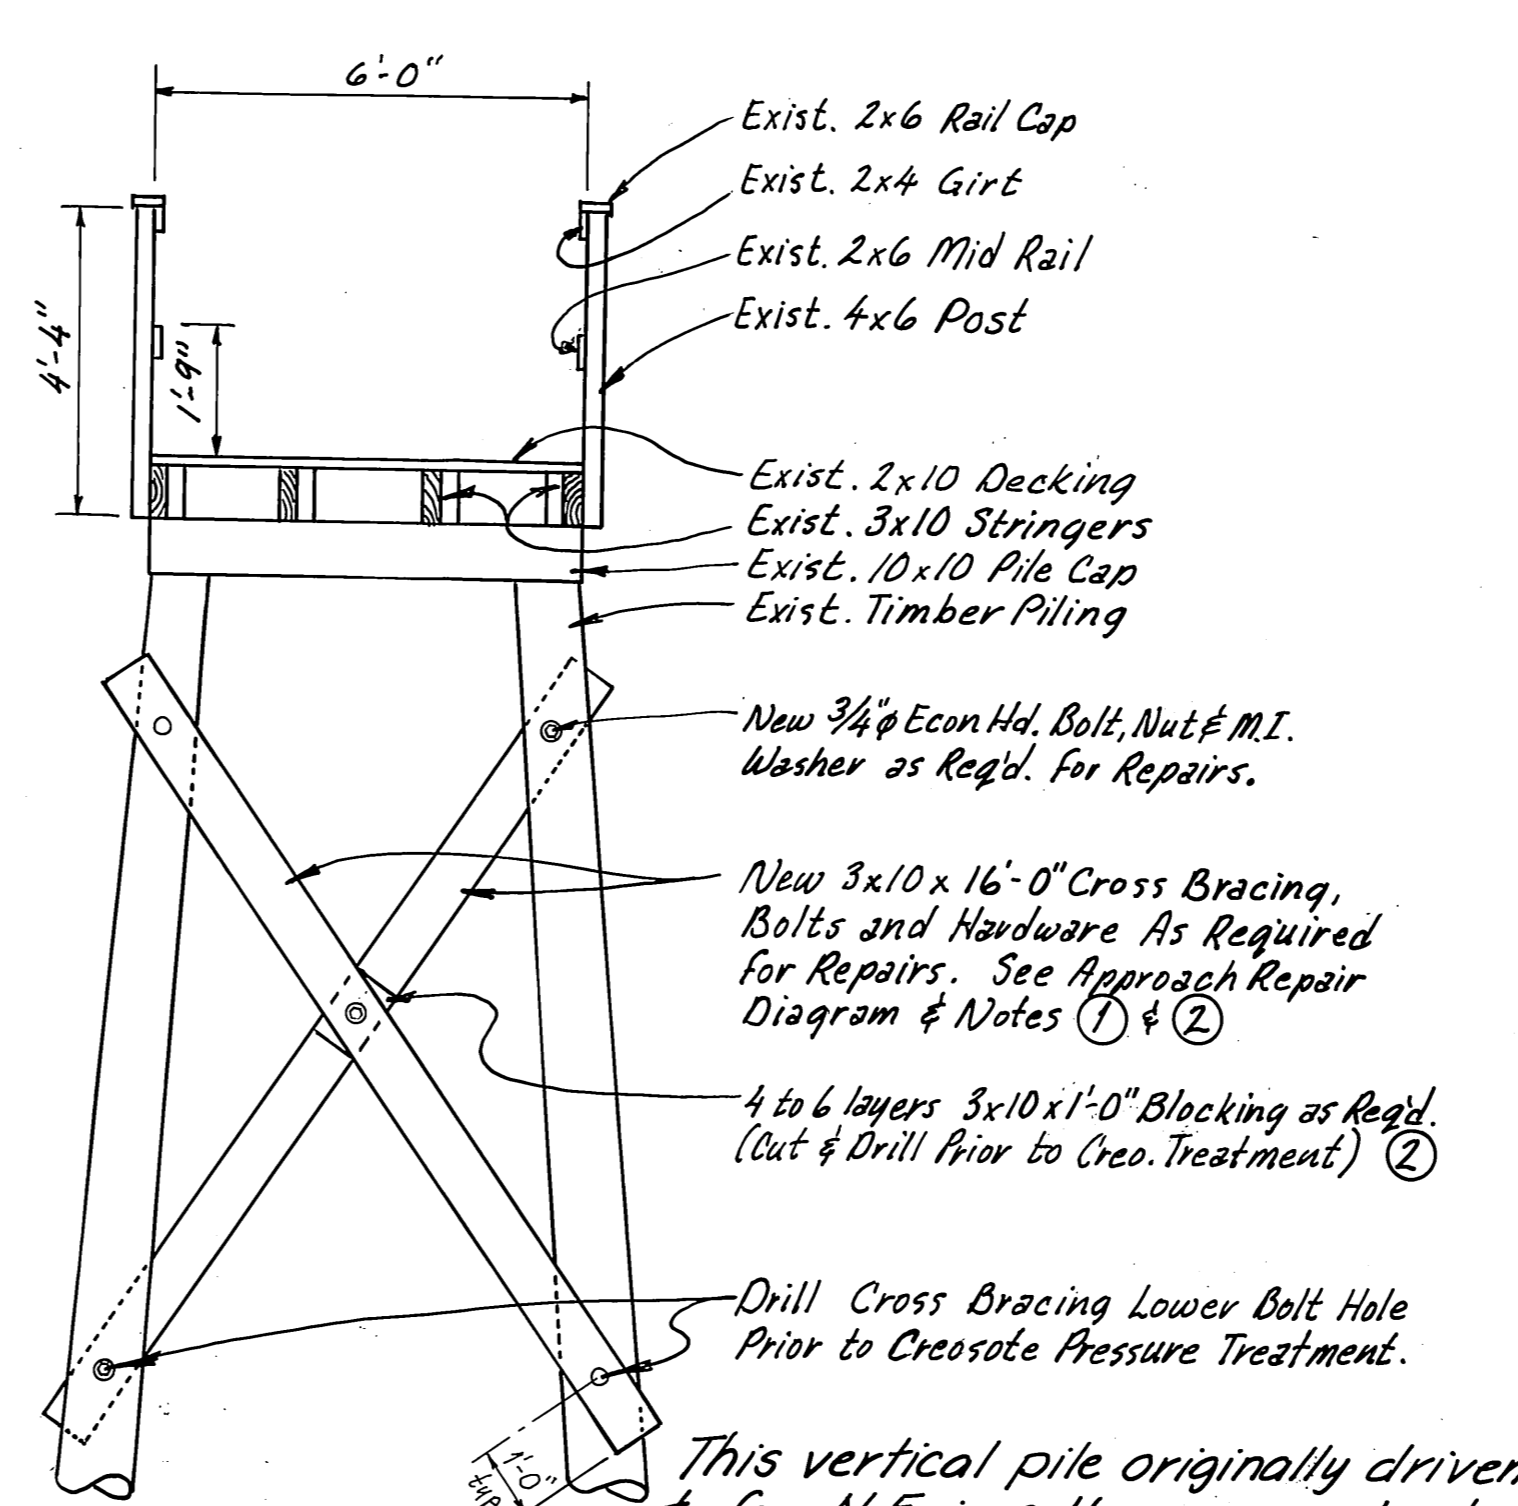 6'-0"
Exist. 2x6 Rail Cap
Exist. 2x4 Girt
Exist. 2x6 Mid Rail
Exist. 4x6 Post
4'-4"
1'-9"
Exist. 2x10 Decking
Exist. 3x10 Stringers
Exist. 10x10 Pile Cap
Exist. Timber Piling
New 3/4"ø Econ Hd. Bolt, Nut & M.I.
Washer as Req'd. for Repairs.
New 3x10 x 16'-0" Cross Bracing,
Bolts and Hardware As Required
for Repairs. See Approach Repair
Diagram & Notes ① & ②
4 to 6 layers 3x10x1'-0" Blocking as Req'd.
(Cut & Drill Prior to Creo. Treatment) ②
Drill Cross Bracing Lower Bolt Hole
Prior to Creosote Pressure Treatment.
1'-0"
typ
This vertical pile originally driven